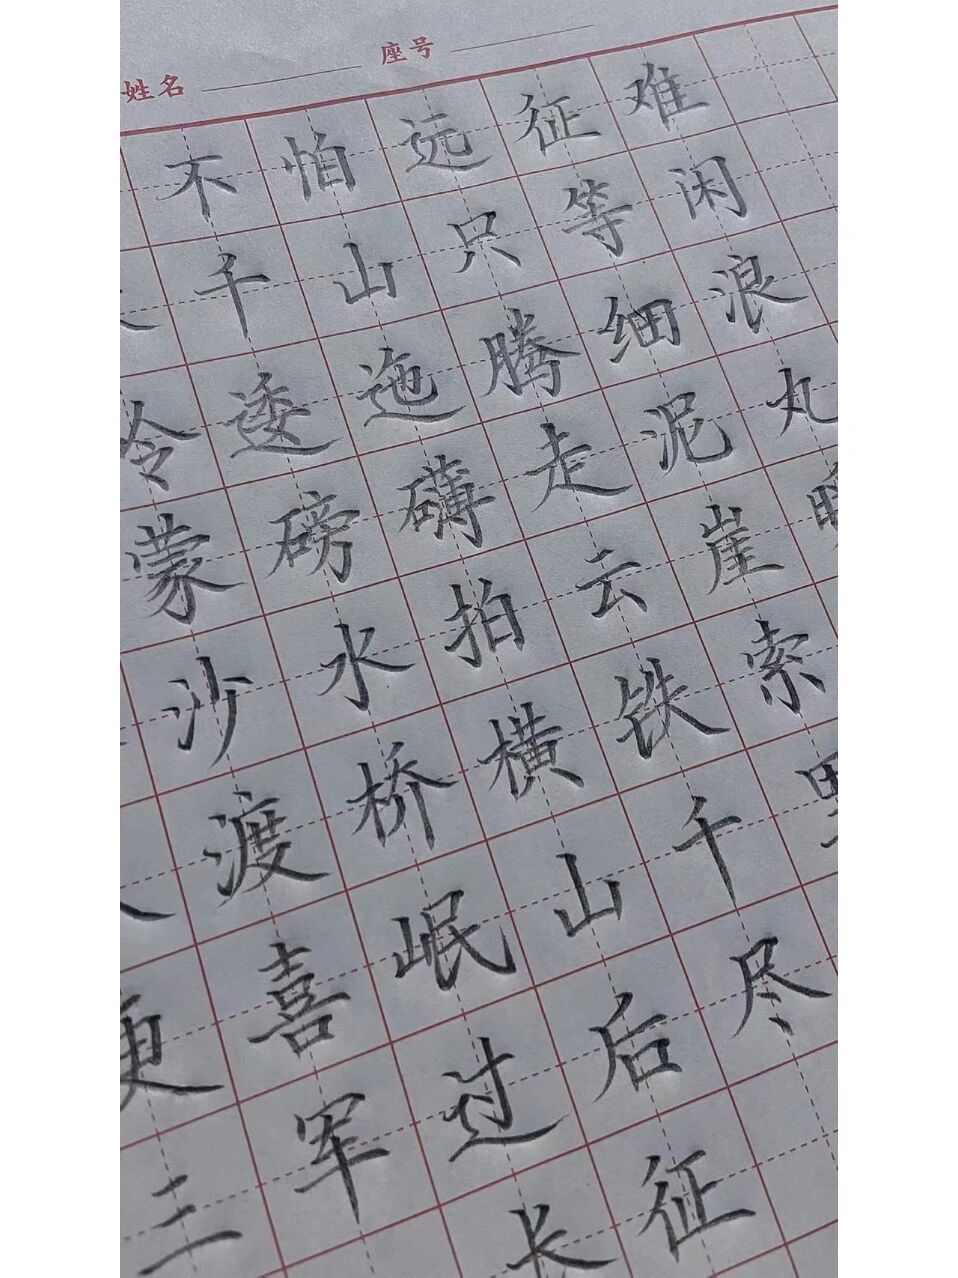 姓名 座号
不怕远征难
千山只等闲
逶迤腾细浪
蒙磅礴走泥丸
沙水拍云崖
渡桥横铁索
更喜岷山千
三军过后尽
长征